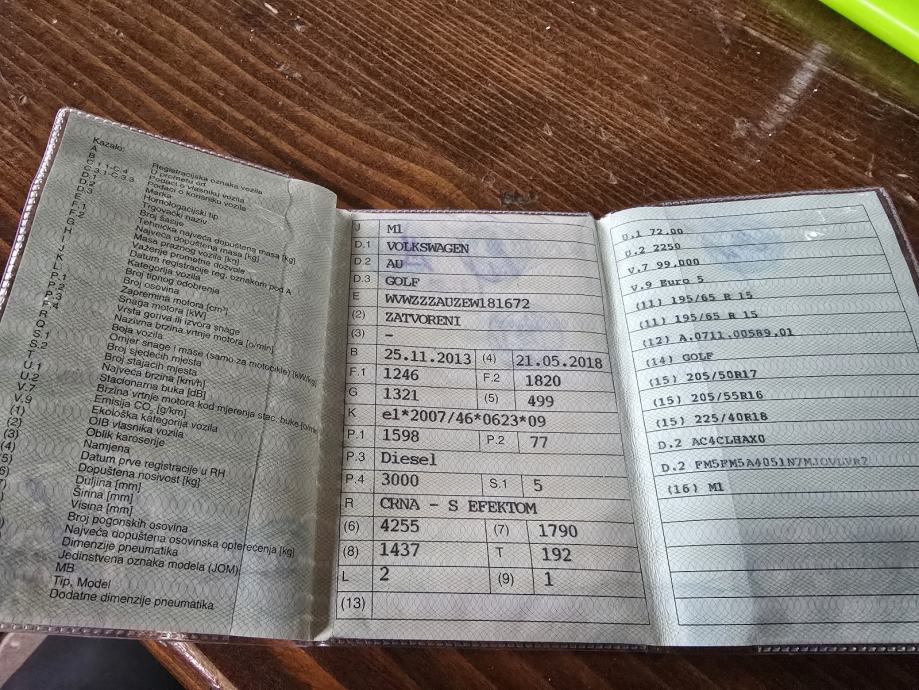 Kazalo:
A Registracijska oznaka vozila
B U prometu od
C.1.1-C.4 Podaci o vlasniku vozila
C.3.1-C.3.3 Podaci o korisniku vozila
D.1 Marka
D.2 Homologacijski tip
D.3 Trgovački naziv
E Broj šasije
F.1 Tehnička najveća dopuštena masa [kg]
F.2 Najveća dopuštena masa [kg]
G Masa praznog vozila [kg]
H Važenje prometne dozvole
I Datum registracije reg. oznakom pod A
J Kategorija vozila
K Broj tipnog odobrenja
L Broj osovina
P.1 Zapremina motora [cm³]
P.2 Snaga motora [kW]
P.3 Vrsta goriva ili izvora snage
P.4 Nazivna brzina vrtnje motora [o/min]
R Boja vozila
Q Omjer snage i mase (samo za motocikle) [kW/kg]
S.1 Broj sjedećih mjesta
S.2 Broj stajaćih mjesta
T Najveća brzina [km/h]
U.1 Stacionarna buka [dB]
U.2 Brzina vrtnje motora kod mjerenja stac. buke
V.7 Emisija CO₂ [g/km]
V.9 Ekološka kategorija vozila
(1) OIB vlasnika vozila
(2) Oblik karoserije
(3) Namjena
(4) Datum prve registracije u RH
5) Dopuštena nosivost [kg]
Duljina [mm]
Širina [mm]
Visina [mm]
Broj pogonskih osovina
Najveća dopuštena osovinska opterećenja [kg]
Dimenzije pneumatika
Jedinstvena oznaka modela (JOM)
MB
Tip, Model
Dodatne dimenzije pneumatika
J M1
D.1 VOLKSWAGEN
D.2 AU
D.3 GOLF
E WVWZZZAUZEW181672
(2) ZATVORENI
(3) –
B 25.11.2013 (4) 21.05.2018
F.1 1246 F.2 1820
G 1321 (5) 499
K e1*2007/46*0623*09
P.1 1598 P.2 77
P.3 Diesel
P.4 3000 S.1 5
R CRNA - S EFEKTOM
(6) 4255 (7) 1790
(8) 1437 T 192
L 2 (9) 1
(13)
U.1 72.00
U.2 2250
V.7 99,000
V.9 Euro 5
(11) 195/65 R 15
(11) 195/65 R 15
(12) A.0711.00589.01
(14) GOLF
(15) 205/50R17
(15) 205/55R16
(15) 225/40R18
D.2 AC4CLHAX0
D.2
(16) M1